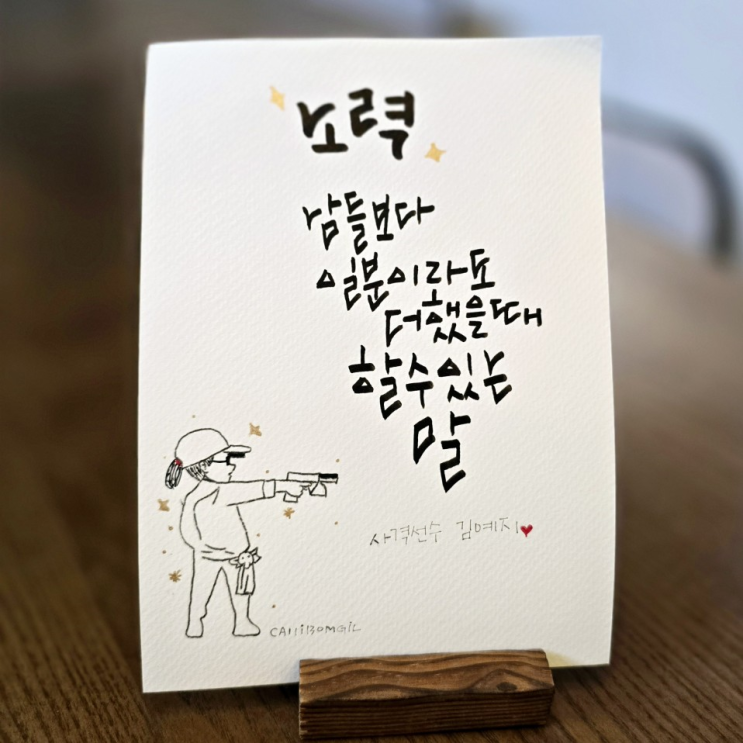 노력
남들보다
일분이라도
더했을때
할수있는
말
사격선수 김예지
CAlliBOMGIL